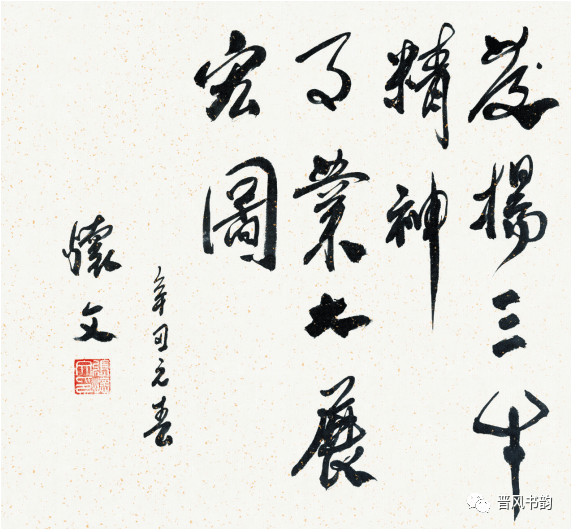 發揚三牛
精神
事業大展
宏圖
辛丑元春
懷文
晋风书韵